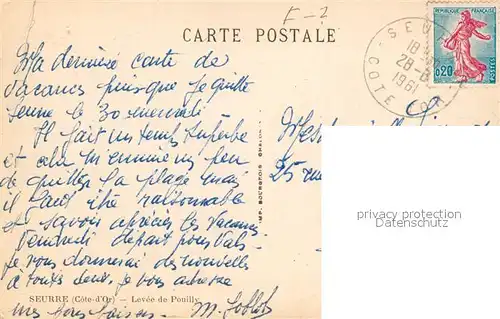 F-?
CARTE POSTALE
REPUBLIQUE FRANÇAISE
0,20
POSTES
SEURRE
18
28-
1961
COTE D'OR
Ma dernière carte de
vacances puisque je quitte
Seurre le 30 mercredi
Il fait un temps superbe
et cela m'ennuie un peu
de quitter la plage mais
il faut être raisonnable
et savoir apprécier les vacances
Vendredi départ pour Vals
Je vous donnerai des nouvelles
à toutes deux. Je vous adresse
mes bons baisers. M.
IMP. BOURGEOIS CHALON
25 rue
privacy protection
Datenschutz
SEURRE (Côte-d'Or) — Levée de Pouilly